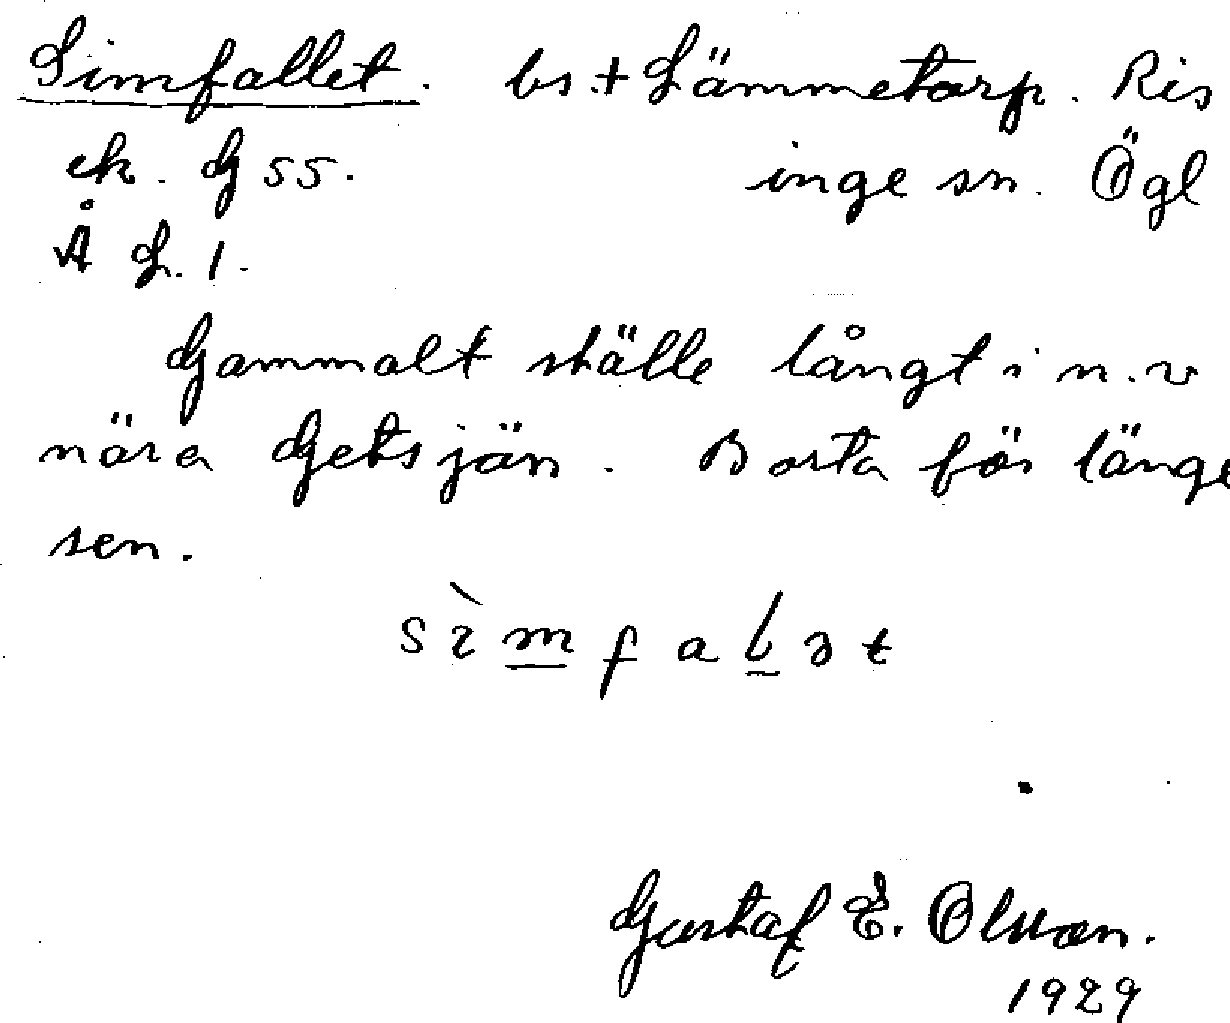 Simfallet. bs.+ Lämmetorp. Ris
ek. G 55. inge sn. Ögl
Å L. 1.
Gammalt ställe långt i n.v
nära Getsjän. Borta för länge
sen.
s ì m f a l ə t
Gustaf E. Olsson.
1929